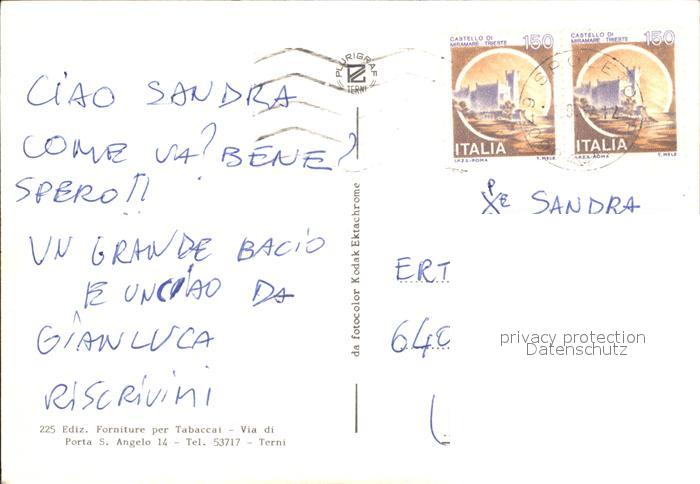 CIAO SANDRA
COME VA? BENE?
SPERO!!
UN GRANDE BACIO
E UN CIAO DA
GIANLUCA
RISCRIVIMI
225 Ediz. Forniture per Tabaccai - Via di
Porta S. Angelo 14 - Tel. 53717 - Terni
PLURIGRAF
TERNI
da fotocolor Kodak Ektachrome
CASTELLO DI
MIRAMARE TRIESTE
150
ITALIA
I.P.Z.S.-ROMA
T. MELE
CASTELLO DI
MIRAMARE TRIESTE
150
ITALIA
I.P.Z.S.-ROMA
T. MELE
SANDRA
ERT
640
privacy protection
Datenschutz